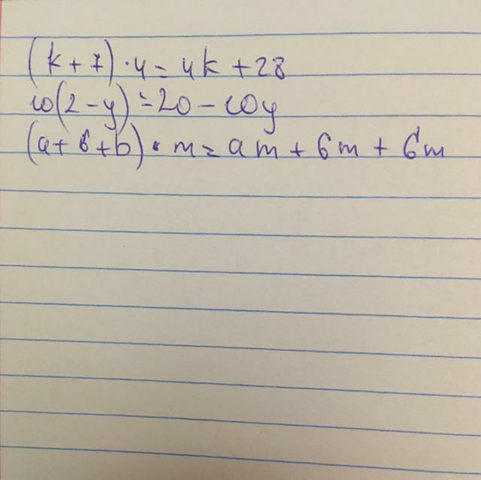 (k + 7) · 4 = 4k + 28
10(2 - y) = 20 - 10y
(a + 6 + b) · m = am + 6m + bm